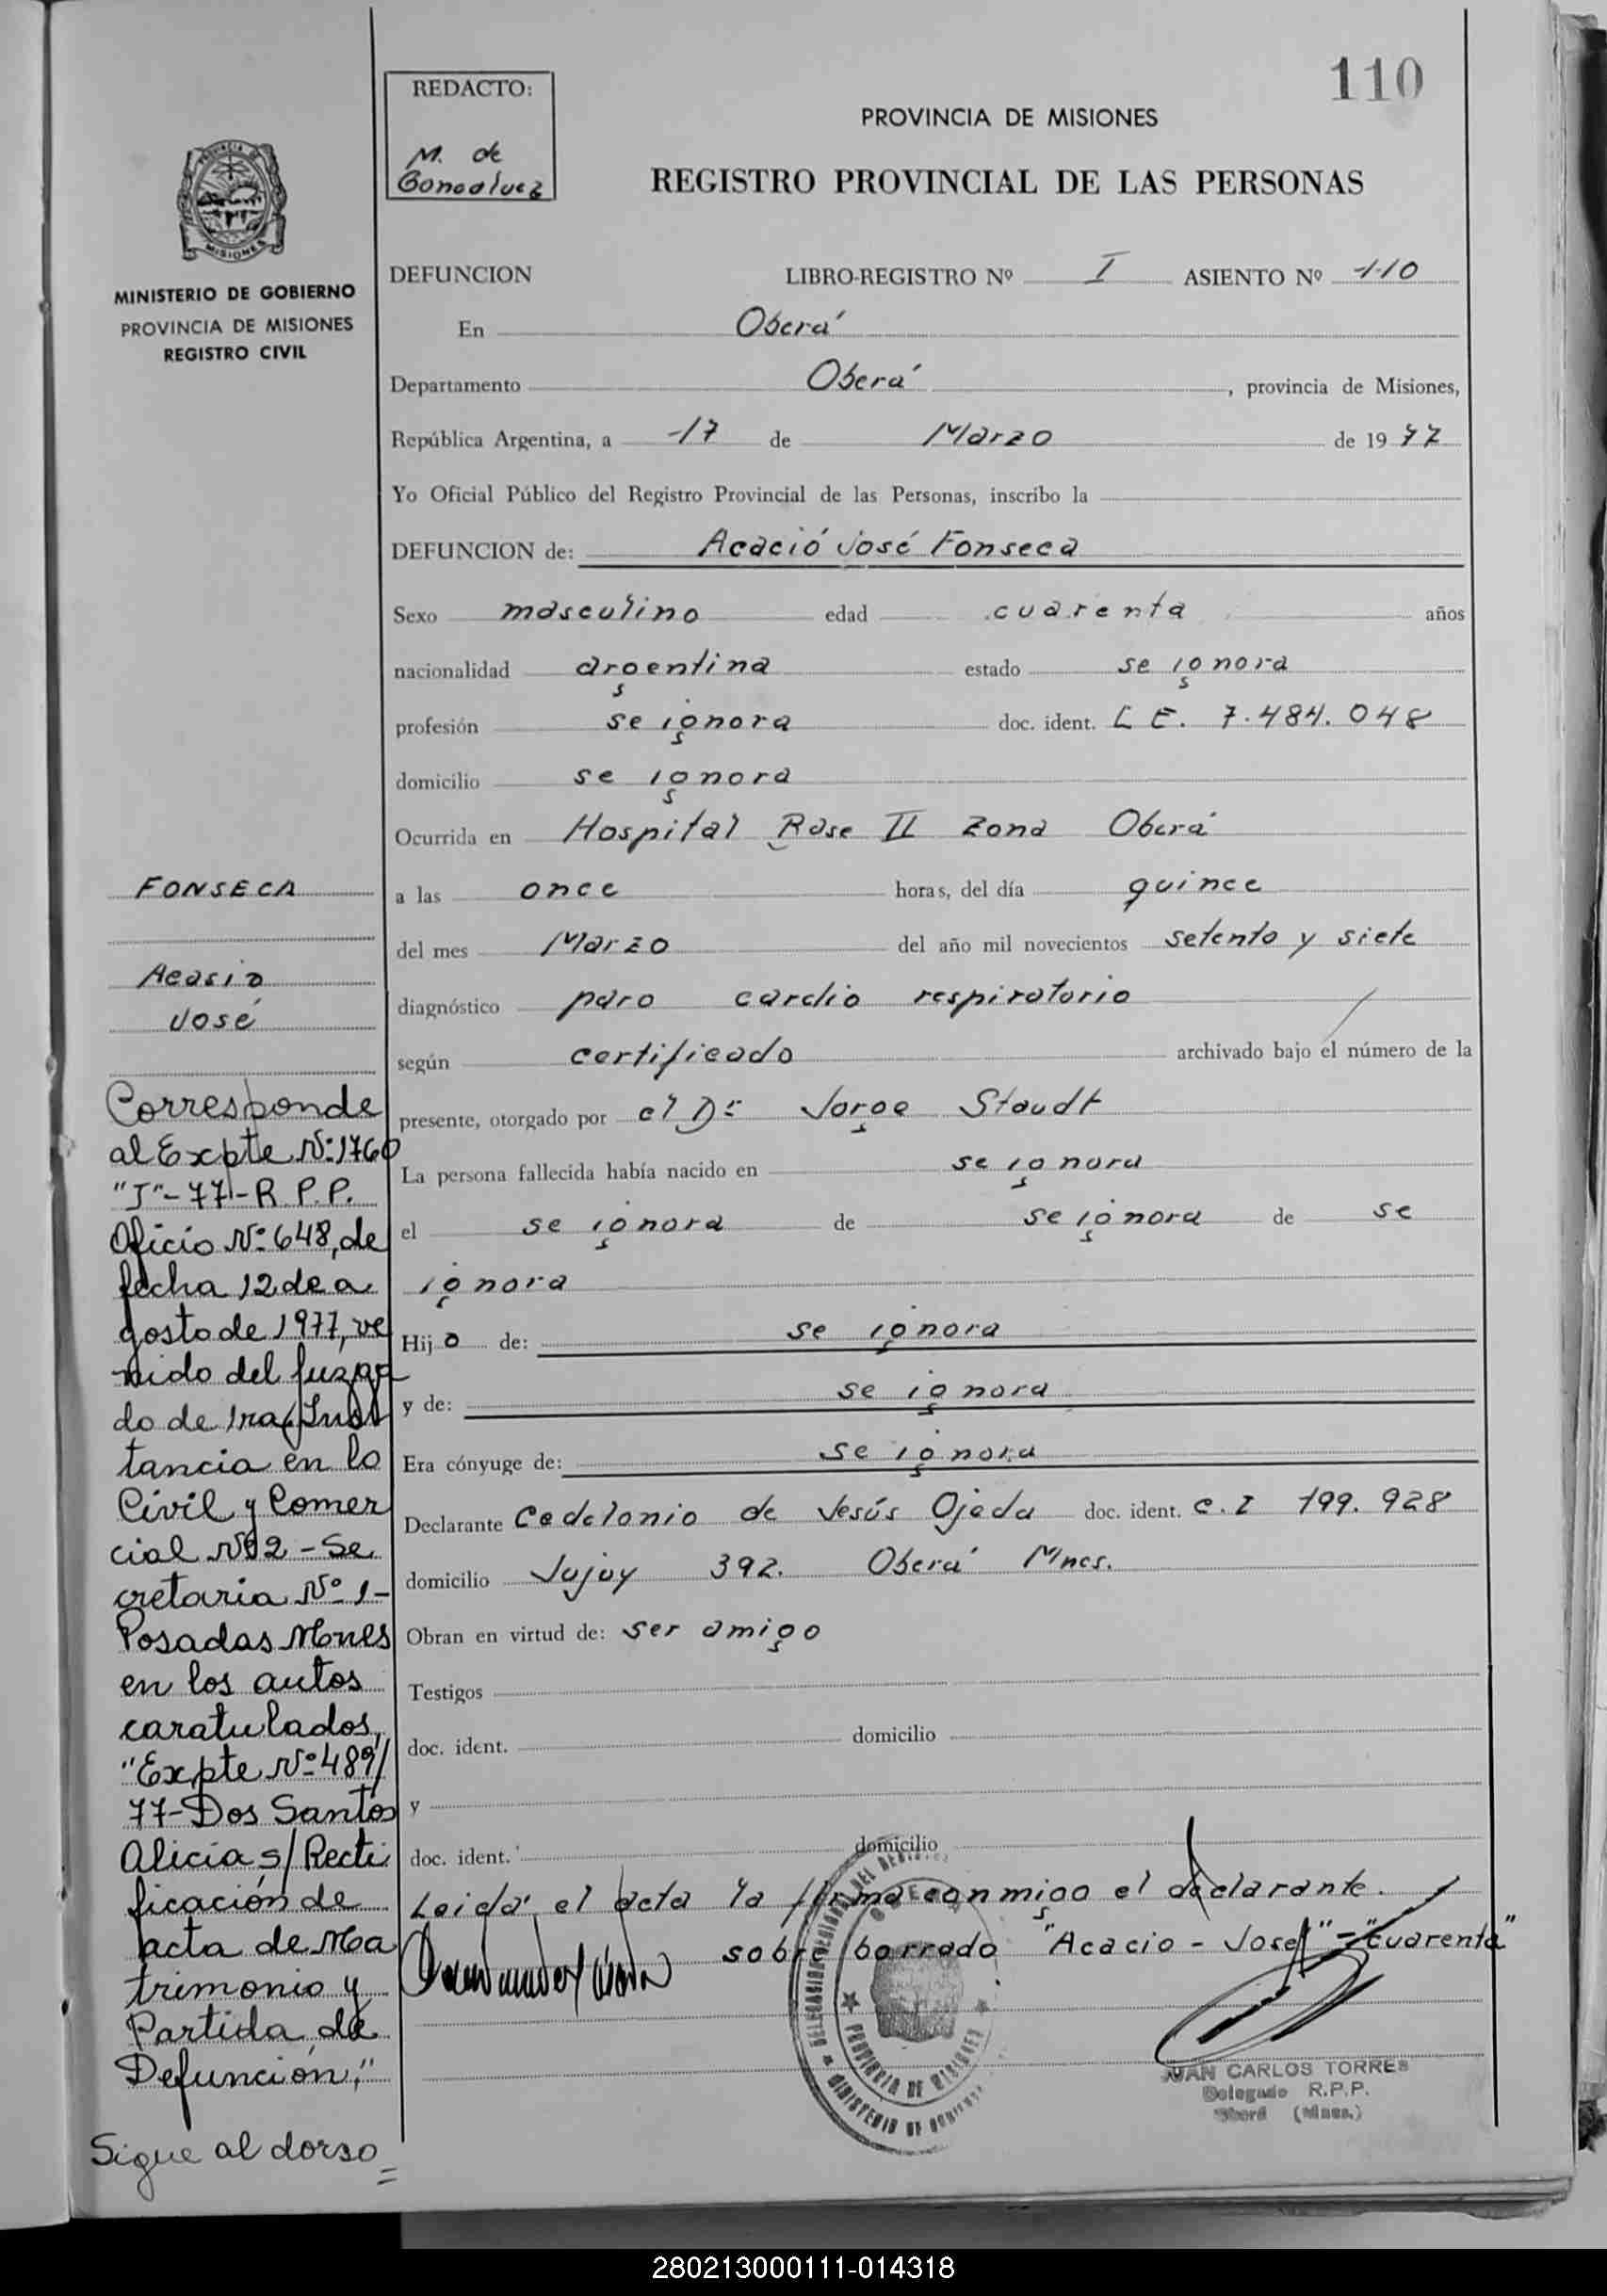 110
REDACTO:
M. de
Goncalvez
PROVINCIA DE MISIONES
REGISTRO PROVINCIAL DE LAS PERSONAS
PROVINCIA DE
MISIONES
MINISTERIO DE GOBIERNO
PROVINCIA DE MISIONES
REGISTRO CIVIL
DEFUNCION LIBRO-REGISTRO Nº I ASIENTO Nº 110
En Oberá
Departamento Oberá, provincia de Misiones,
República Argentina, a 17 de Marzo de 1977
Yo Oficial Público del Registro Provincial de las Personas, inscribo la
DEFUNCION de: Acació José Fonseca
Sexo masculino edad cuarenta años
nacionalidad argentina estado se ignora
profesión se ignora doc. ident. L E. 7.484.048
domicilio se ignora
Ocurrida en Hospital Base II Zona Oberá
a las once horas, del día quince
del mes Marzo del año mil novecientos setenta y siete
diagnóstico paro cardio respiratorio
según certificado archivado bajo el número de la
presente, otorgado por el Dr Jorge Staudt
La persona fallecida había nacido en se ignora
el se ignora de se ignora de se
ignora
Hijo de: se ignora
y de: se ignora
Era cónyuge de: se ignora
Declarante Cedelonio de Jesús Ojeda doc. ident. C. I 199.928
domicilio Jujuy 392. Oberá Mnes.
Obran en virtud de: ser amigo
Testigos
doc. ident. domicilio
y
doc. ident. domicilio
Leida el acta la firma conmigo el declarante.
sobre borrado "Acacio - José" - "cuarenta"
JUAN CARLOS TORRES
Delegado R.P.P.
Oberá (Mnes.)
PROVINCIA DE MISIONES
MINISTERIO DE GOBIERNO
FONSECA
Acasio
José
Corresponde
al Expte Nº 1760
"J"-77-R P.P.
Oficio Nº 648, de
fecha 12 de a
gosto de 1977, ve
nido del Juzga
do de 1ra Ins
tancia en lo
Civil y Comer
cial Nº 2 - Se
cretaria Nº 1-
Posadas Mnes
en los autos
caratulados,
"Expte Nº 489/
77-Dos Santos
Alicia s/ Recti
ficación de
acta de Ma
trimonio y
Partida de
Defunción,"
Sigue al dorso =
280213000111-014318